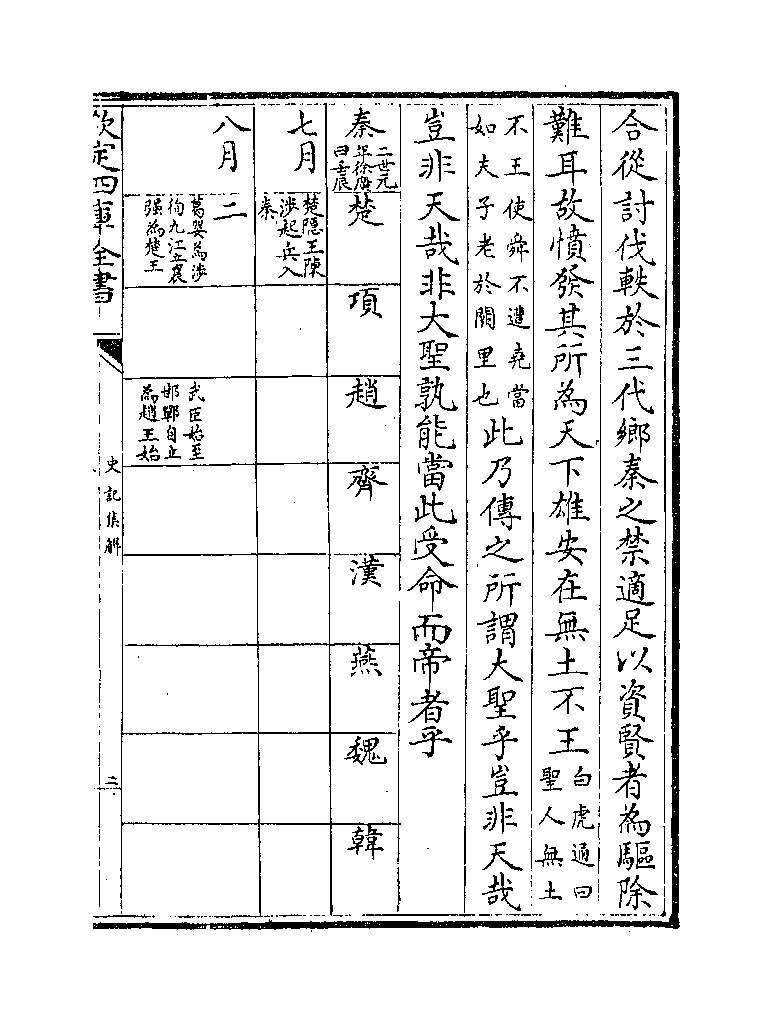 合從討伐軼於三代鄉秦之禁適足以資賢者為驅除
難耳故憤發其所為天下雄安在無土不王白虎通曰聖人無土
不王使舜不遭堯當如夫子老於闕里也此乃傳之所謂大聖乎豈非天哉
豈非天哉非大聖孰能當此受命而帝者乎
秦二世元年徐廣曰壬辰
楚
項
趙
齊
漢
燕
魏
韓
七月
楚隱王陳涉起兵入秦
八月
二
葛嬰為涉徇九江立襄彊為楚王
武臣始至邯鄲自立為趙王始
欽定四庫全書
史記集解
二